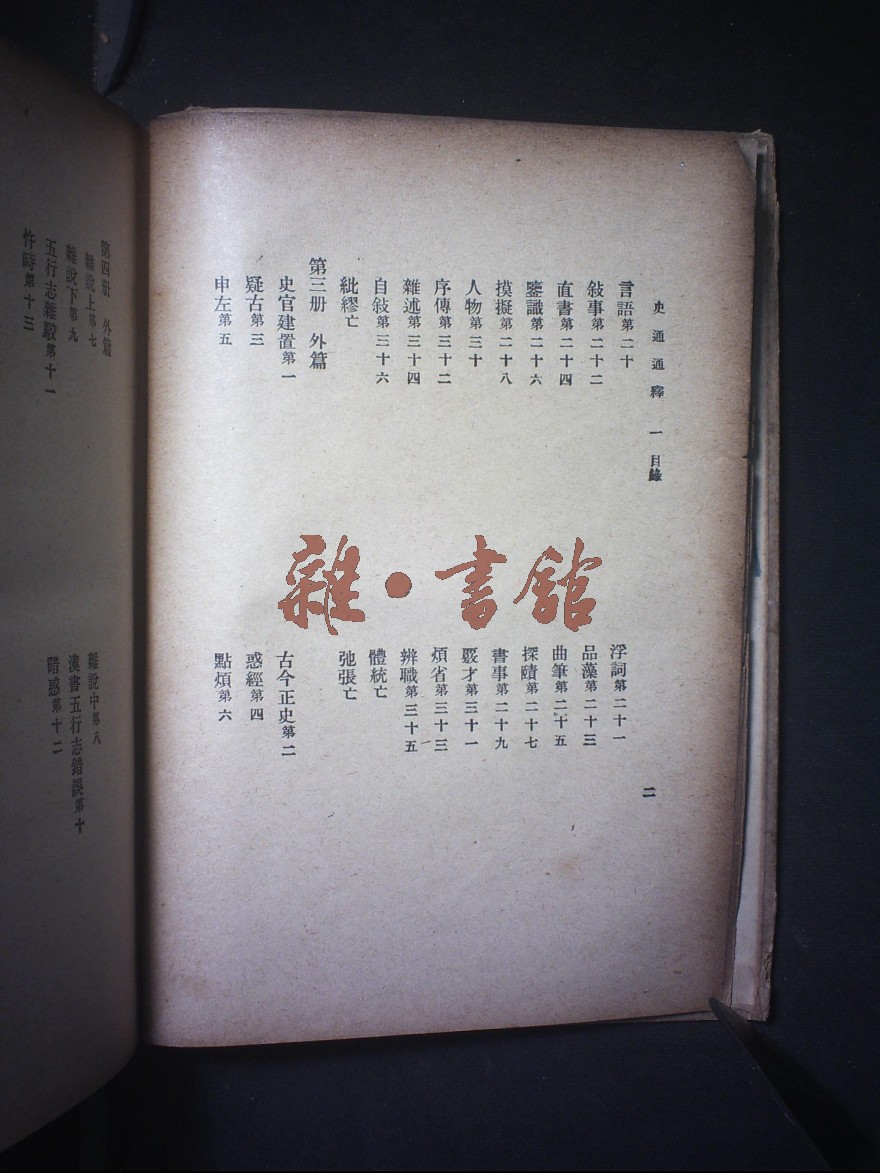 史通通釋 一 目錄
二
言語第二十
浮詞第二十一
敍事第二十二
品藻第二十三
直書第二十四
曲筆第二十五
鑒識第二十六
探賾第二十七
摸擬第二十八
書事第二十九
人物第三十
覈才第三十一
序傳第三十二
煩省第三十三
雜述第三十四
辨職第三十五
自敍第三十六
體統亡
紕繆亡
弛張亡
第三册 外篇
史官建置第一
古今正史第二
疑古第三
惑經第四
申左第五
點煩第六
第四册 外篇
雜說上第七
雜說中第八
雜說下第九
漢書五行志錯誤第十
五行志雜駁第十一
暗惑第十二
忤時第十三
雜·書館